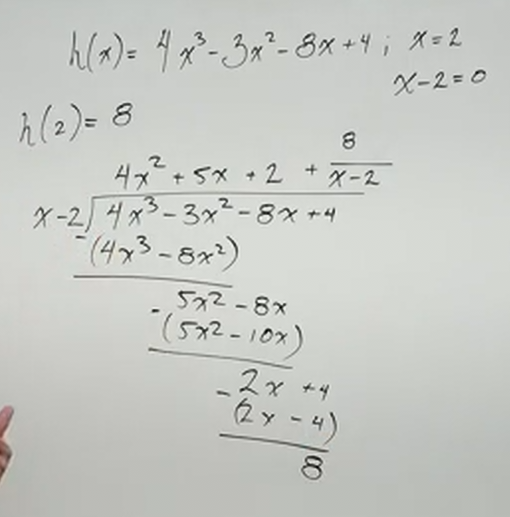 h(x) = 4x³ - 3x² - 8x + 4 ; x = 2
x - 2 = 0
h(2) = 8
8
4x² + 5x + 2 + x - 2
x - 2 4x³ - 3x² - 8x + 4
- (4x³ - 8x²)
5x² - 8x
- (5x² - 10x)
2x + 4
- (2x - 4)
8